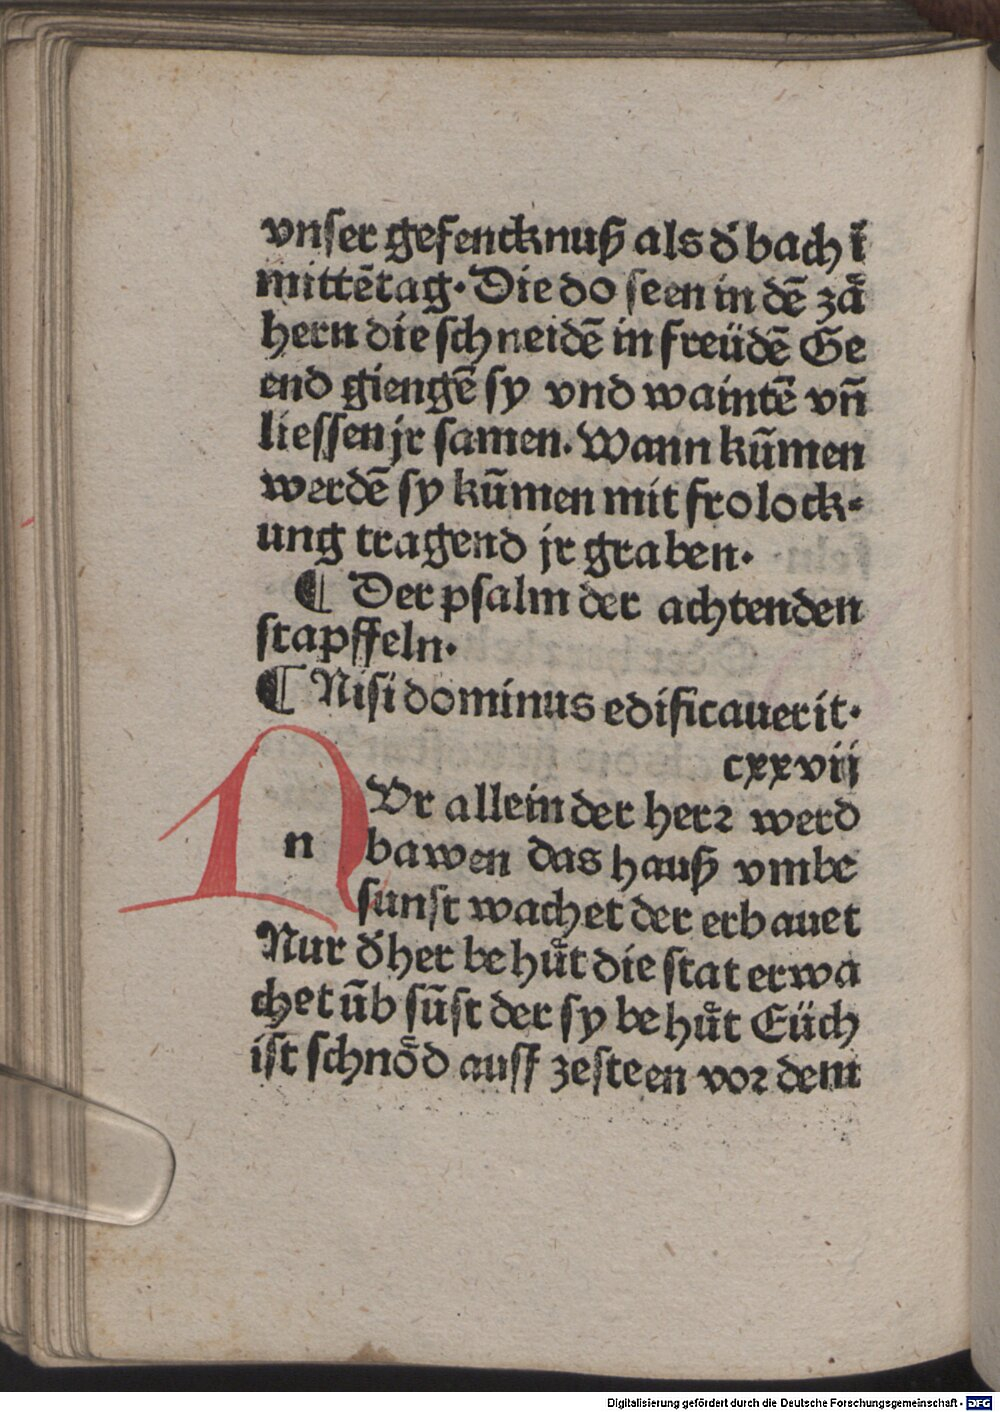 vnser gefencknuß als d̕ bach ī
mittētag. Die do seen in dē zaͤ
hern die schneidē in freüdē Ge
end giengē sy vnd waintē vn̄
liessen jr samen. Wann kūmen
werdē sy kūmen mit frolock⸗
ung tragend jr graben.
¶ Der psalm der achtenden
stapffeln.
¶ Nisi dominus edificauerit.
cxxvij
NVr allein der herꝛ werd
n bawen das hauß vmbe
sunst wachet der erbauet
Nur d̕ her behuͤt die stat erwa
chet ūb sūst der sy behuͤt Eüch
ist schnoͤd auff zesteen voꝛ dem
Digitalisierung gefördert durch die Deutsche Forschungsgemeinschaft - DFG